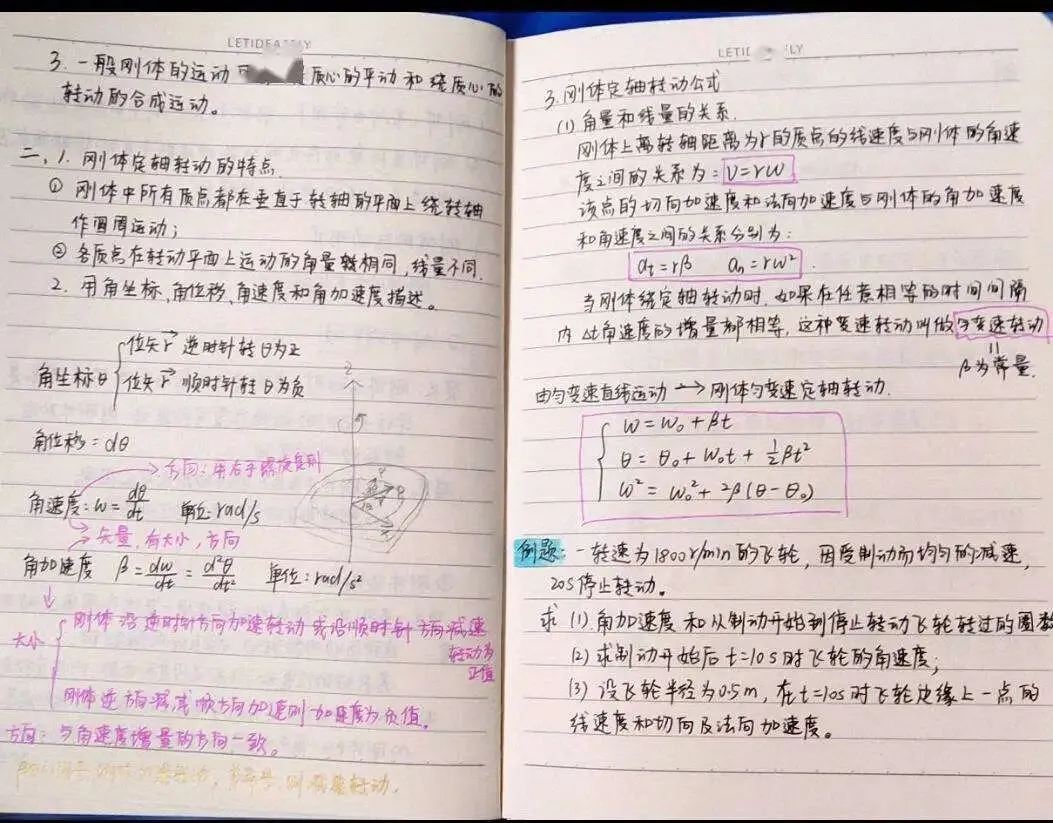 LETIDEA
3. 一般刚体的运动 质心的平动和绕质心的
转动的合成运动。
二、1. 刚体定轴转动的特点.
① 刚体中所有质点都在垂直于转轴的平面上绕转轴
作圆周运动;
② 各质点在转动平面上运动的角量都相同,线量不同.
2. 用角坐标、角位移、角速度和角加速度描述。
角坐标θ
位矢r→ 逆时针转 θ为正
位矢r→ 顺时针转 θ为负
Z
角位移 = dθ
方向: 用右手螺旋定则
角速度: ω = dθ/dt 单位: rad/s
矢量, 有大小, 方向
角加速度 β = dω/dt = d²θ/dt² 单位: rad/s²
大小
刚体沿逆时针方向加速转动或沿顺时针方向减速
转动为
正值
刚体逆方向减,或顺方向加速则加速度为负值。
方向: 与角速度增量的方向一致。
LETI LY
3. 刚体定轴转动公式
(1) 角量和线量的关系.
刚体上离转轴距离为r的质点的线速度与刚体的角速
度之间的关系为: v=rω
该点的切向加速度和法向加速度与刚体的角加速度
和角速度之间的关系分别为:
at=rβ an=rω².
当刚体绕定轴转动时, 如果在任意相等的时间间隔
内 Δt 角速度的增量都相等, 这种变速转动叫做匀变速转动
=
β为常量.
由匀变速直线运动 → 刚体匀变速定轴转动.
ω = ω₀ + βt
θ = θ₀ + ω₀t + ½βt²
ω² = ω₀² + 2β(θ-θ₀)
例题: 一转速为1800r/min的飞轮, 因受制动而均匀的减速,
20s停止转动。
求 (1). 角加速度和从制动开始到停止转动飞轮转过的圈数
(2) 求制动开始后 t=10s 时飞轮的角速度;
(3) 设飞轮半径为0.5m, 在t=10s时飞轮边缘上一点的
线速度和切向及法向加速度。